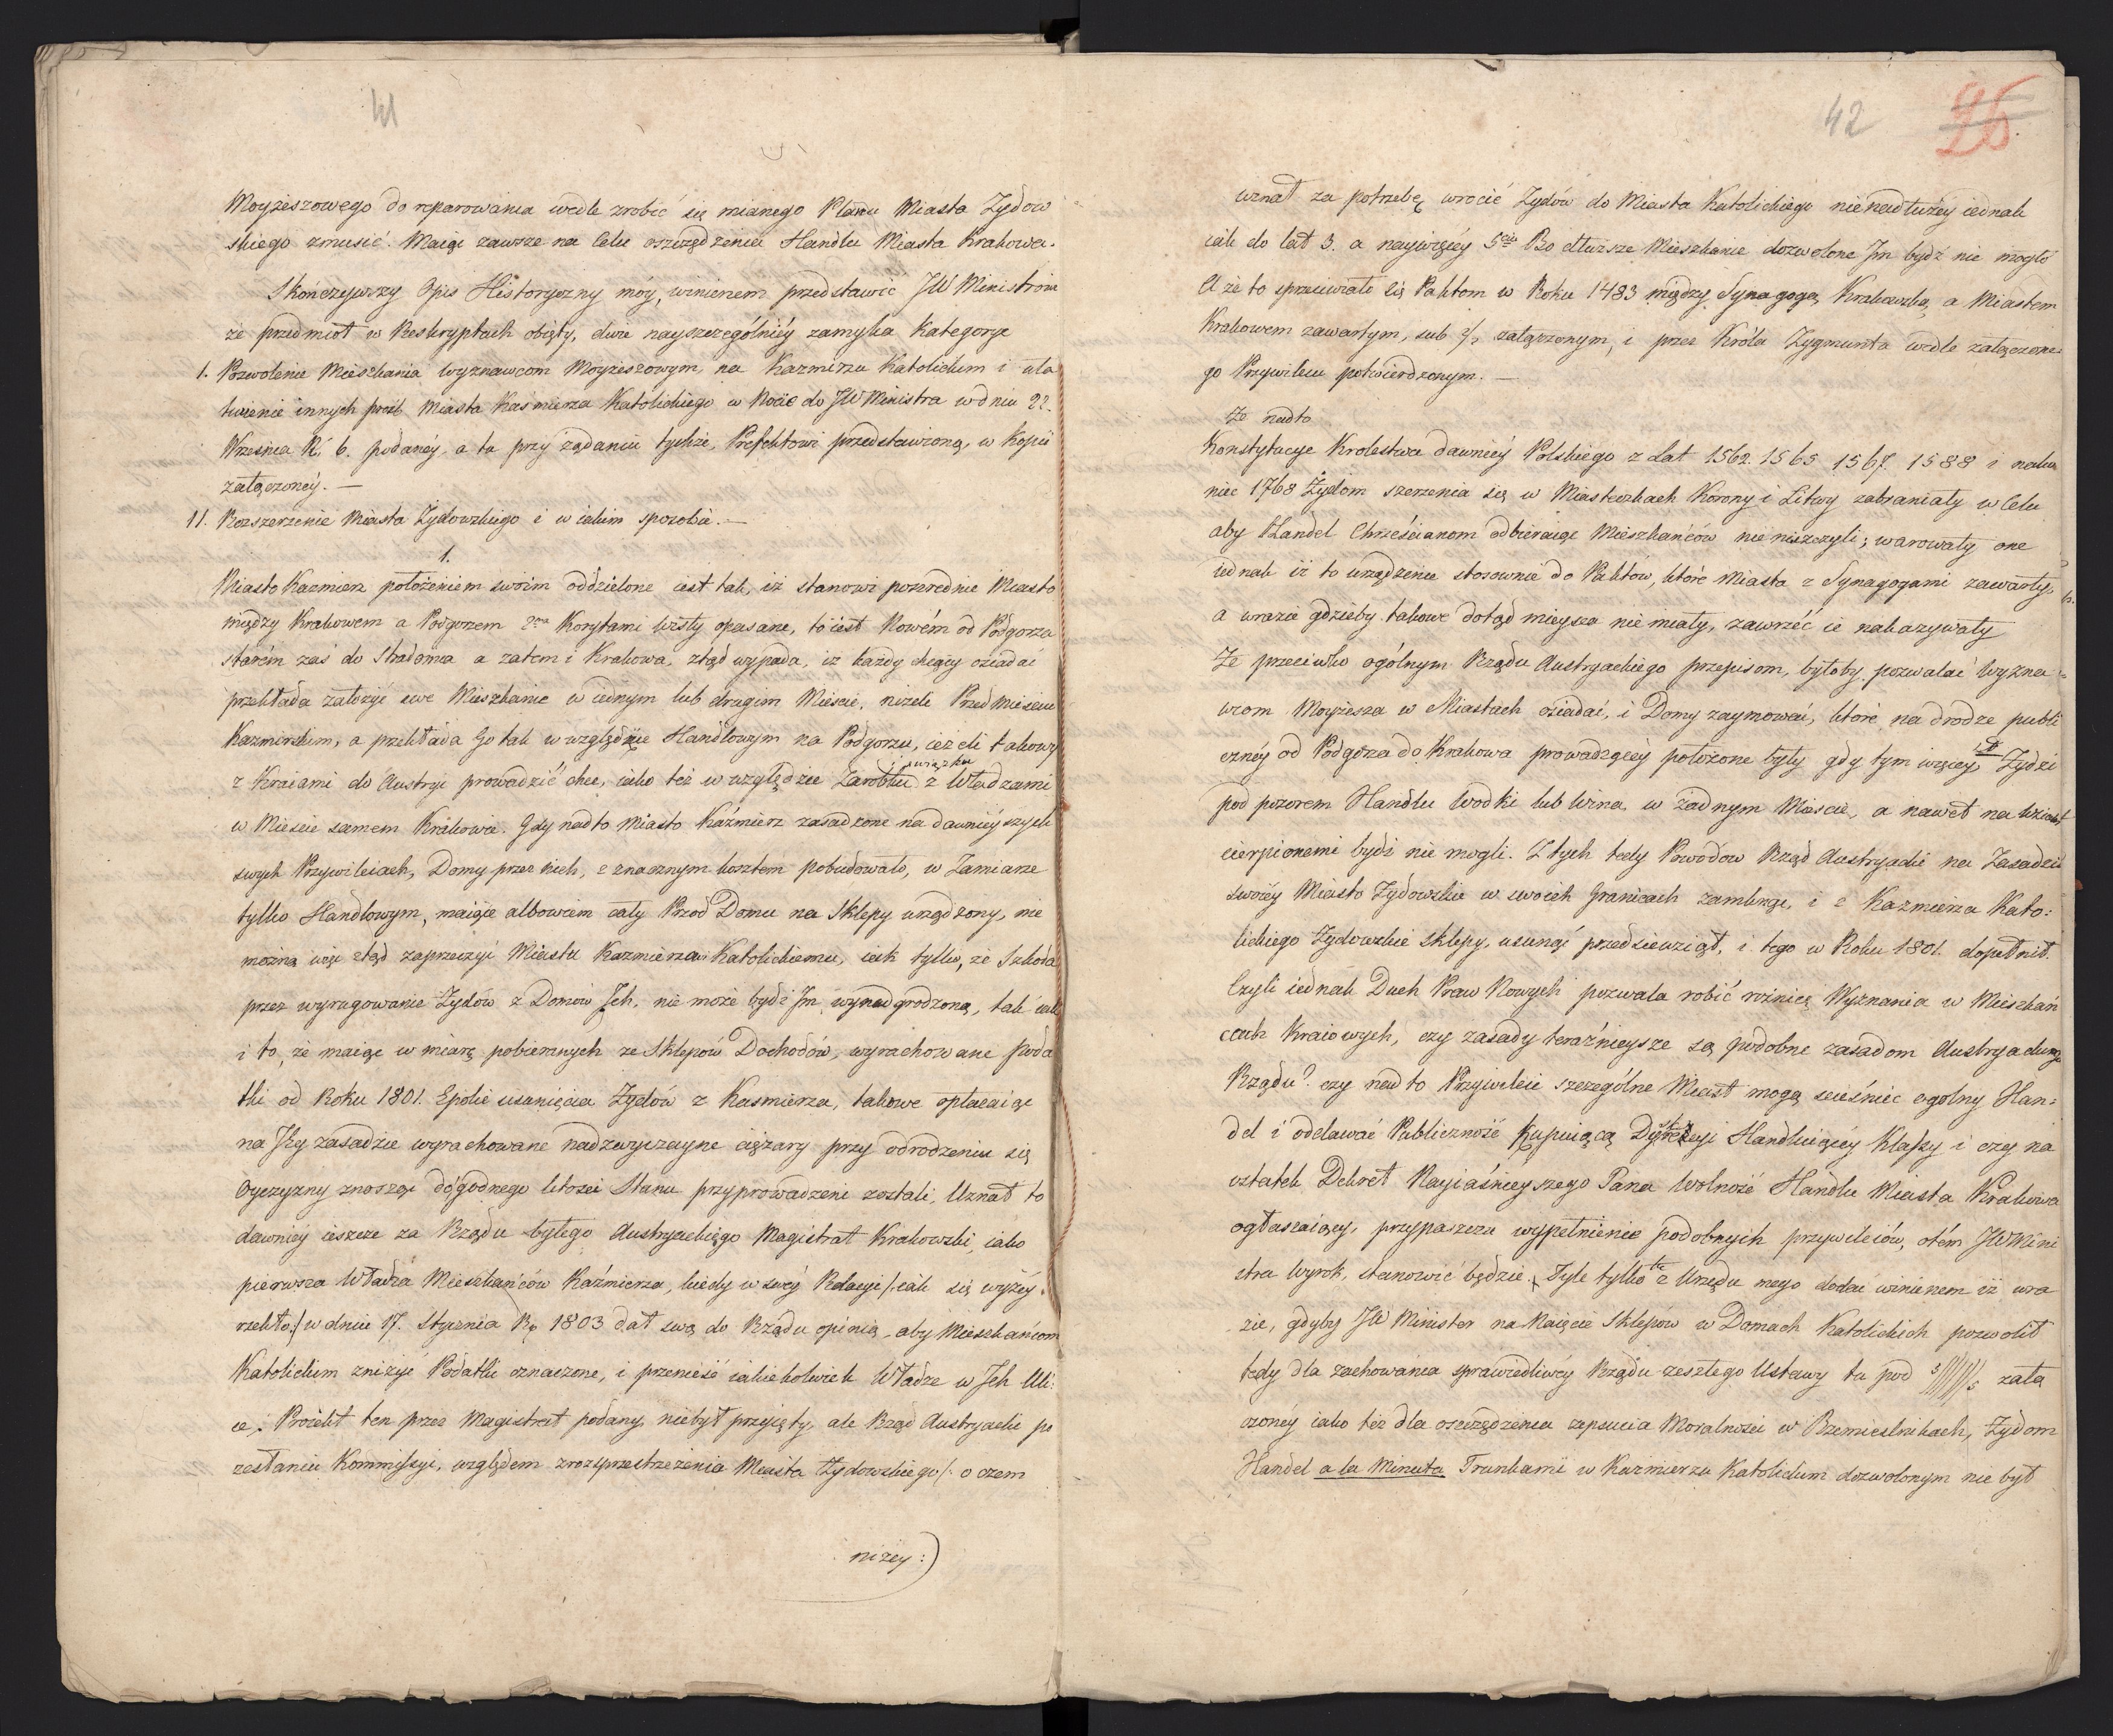 41
Moyżeszowego do reparowania wedle zrobić się mianego Planu Miasta Zydow
skiego zmusić. Maiąc zawsze na Celu oszczędzenie Handlu Miasta Krakowa.
Skończywszy Opis Historyczny móy, winienem przedstawić JW Ministrowi
że przedmiot w Reskryptach obięty, dwie nayszczególniéy zamyka Kategorye
1. Pozwolenie Mieszkania wyznawcom Moyżeszowym, na Kazmirzu Katolickim i uła
twienie innych proźb Miasta Kazmierza Katolickiego w Nocie do JW Ministra w dniu 22.
Wrzesnia R. b. podanéy, a tu przy żądaniu tychże, Prefektowi przedstawioną, w Kopii
załączonéy. —
11. Rozszerzenie Miasta Zydowskiego i w iakim sposobie. —
1.
Miasto Kazmierz położeniem swoim oddzielone iest tak, iż stanowi pozsrednie Miasto
między Krakowem a Podgorzem 2ma Korytami Wisły opasane, to iest Nowém od Podgorza
starém zaś do Stradomia a zatem i Krakowa, ztąd wypada, iz każdy chcący osiadać
przekłada założyć swe Mieszkanie w iednym lub drugim Mieście, niżeli Przedmieściu
Kazmirskim, a przekłada go tak w względzie Handlowym na Podgorzu, ieżeli takowy
z Kraiami do Austryi prowadzić chce, iako też w względzie Zarobku i związku z Władzami
w Mieście samem Krakowie. Gdy nadto Miasto Kaźmierz zasadzone na dawniéyszych
swych Przywileiach, Domy przez nich, z znacznym kosztem pobudowało, w Zamiarze
tylko Handlowym, maiąc albowiem cały Przod Domu na Sklepy urządzony, nie
można więc ztąd zaprzeczyć Miastu Kazmierzowi Katolickiemu, iak tylko, że Szkoda
przez wyrugowanie Zydów z Domów Ich, nie może bydź Im wynadgrodzoną, tak iak
i to, że maiąc w miarę pobieranych ze Sklepów Dochodów, wyrachowane poda
tki od Roku 1801. Epoki usunięcia Zydów z Kazmierza, takowe opłacaiąc
na Jey zasadzie wyrachowane nadzwyczayne ciężary przy odrodzeniu się
Oyczyzny znosząc do godnego litości Stanu przyprowadzeni zostali. Uznał to
dawniéy ieszcze za Rządu byłego Austryackiego Magistrat Krakowski, iako
pierwsza Władza Mieszkańców Kaźmierza, kiedy w swéy Relacyi /: iak się wyżéy
rzekło:/ w dniu 17. Stycznia Ro 1803 dał swą do Rządu opinią, aby Mieszkańcom
Katolickim zniżyć Podatki oznaczone, i przenieść iakiekolwiek Władze w Ich Uli:
ce. Proiekt ten przez Magistrat podany, niebył przyięty, ale Rząd Austryacki po
zesłaniu Kommissyi, względem rozprzestrzeżenia Miasta Zydowskiego /: o czem
niżey:)
42
26
uznał za potrzebę wrocić Zydów do Miasta Katolickiego nienadłużéy iednak
iak do lat 3. a naywięcéy 5ciu Bo dłuższe Mieszkanie dozwolone Im bydź nie mogło
A że to sprzeciwiało się Paktom w Roku 1483 między Synagogą Krakowską, a Miastem
Krakowem zawartym, sub 2/2 załączonym, i przez Króla Zygmunta wedle załączone
go Przywileiu potwierdzonym. —
Że nadto
Konstytucye Krolestwa dawniéy Polskiego z Lat 1562. 1565 1567. 1588 i nako
niec 1768 Żydom szerzenia się w Miasteczkach Korony i Litwy zabraniały w Celu
aby Handel Chrześcianom odbieraiąc Mieszkańców nie niszczyli; warowały one
iednak iż to urządzenie stosownie do Paktów, które Miasta z Synagogami zawarły,
a wrazie gdzieby takowe dotąd mieysca nie miały, zawrzéć ie nakazywały
Że przeciwko ogólnym Rządu Austryackiego przepisom, byłoby, pozwalać Wyzna
wcom Moyżesza w Miastach osiadać, i Domy zaymować, które na drodze publi
cznéy od Podgorza do Krakowa prowadzącéy położone były gdy tym więcéy Zydzi
pod pozorem Handlu Wodki lub Wina w żadnym Mieście, a nawet na Wsiach
cierpionemi bydź nie mogli. Z tych tedy Powodow Rząd Austryacki na Zasadzie
swoiéy Miasto Zydowskie w swoich Granicach zamknąć, i z Kazmierza Kato:
lickiego Zydowskie Sklepy, usunąć przedsiewziął, i tego w Roku 1801. dopełnił.
Czyli iednak Duch Praw Nowych pozwala robić roźnicę Wyznania w Mieszkań
cach Kraiowych, czy zasady teraźnieysze są podobne zasadom Austryackiego
Rządu? czy nadto Przywileie szczególne Miast mogą scieśnieć ogolny Han:
del i oddawać Publiczność Kupuiącą Dyskrecyi Handluiącéy Klassy i czy na
ostatek Dekret Nayiaśnieyszego Pana Wolność Handlu Miasta Krakowa
ogłaszaiący, przypuszcza wypełnienie podobnych przywileiów, o tém JW Mini
stra Wyrok, stanowić będzie. Tyle tylko tu z Urzędu mego dodać winienem iż wra
zie, gdyby JW Minister na Naięcie Sklepów w Domach Katolickich pozwolił
tedy dla zachowania sprawiedliwéy Rządu zeszłego Ustawy tu pod załą
czonéy iako też dla oszczędzenia zepsucia Moralności w Rzemieslnikach, Żydom
Handel a la Minuta Trunkami w Kazmierzu Katolickim dozwolonym nie był